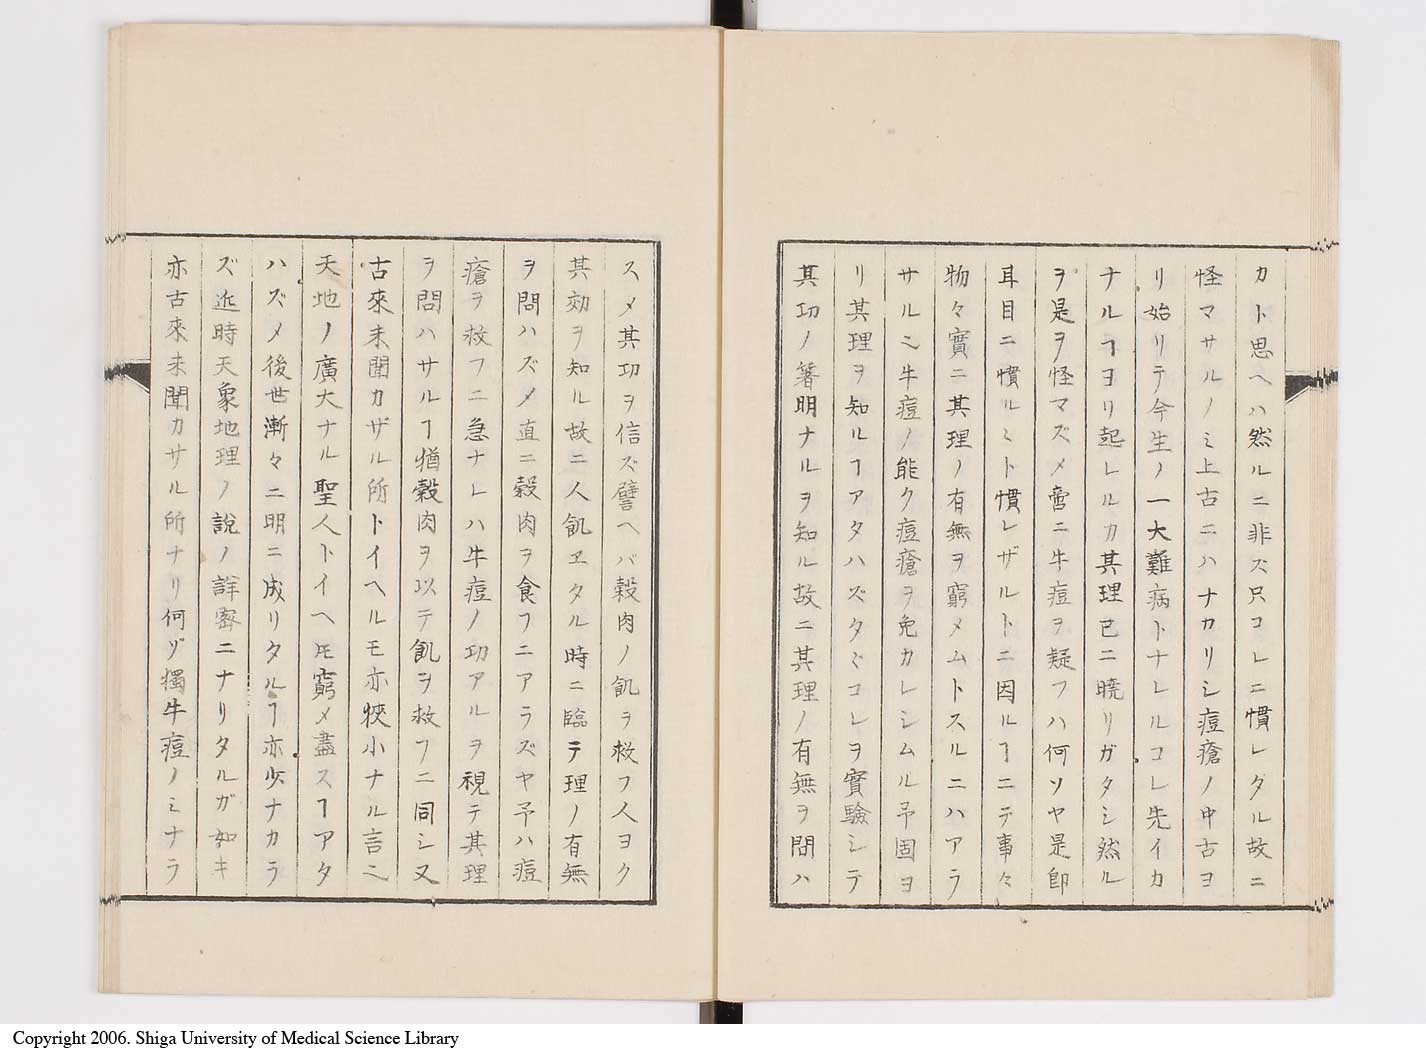 カト思ヘハ然ルニ非ズ只コレニ慣レタル故ニ
怪マサルノミ上古ニハナカリシ痘瘡ノ中古ヨ
リ始リテ今生ノ一大難病トナレルコレ先イカ
ナルヿヨリ起レルカ其理已ニ曉リガタシ然ル
ヲ是ヲ怪マズメ啻ニ牛痘ヲ疑フハ何ソヤ是卽
耳目ニ慣ルヽト慣レザルトニ因ルヿニテ事々
物々實ニ其理ノ有無ヲ窮メムトスルニハアラ
サルニ牛痘ノ能ク痘瘡ヲ免カレシムル予固ヨ
リ其理ヲ知ルヿアタハズタヾコレヲ實驗シテ
其功ノ著明ナルヲ知ル故ニ其理ノ有無ヲ問ハ
スメ其功ヲ信ズ譬ヘバ穀肉ノ飢ヲ救フ人ヨク
其効ヲ知ル故ニ人飢ヱタル時ニ臨テ理ノ有無
ヲ問ハズメ直ニ穀肉ヲ食フニアラズヤ予ハ痘
瘡ヲ救フニ急ナレハ牛痘ノ功アルヲ視テ其理
ヲ問ハサルヿ猶穀肉ヲ以テ飢ヲ救フニ同シ又
古來未聞カザル所トイヘルモ亦狹小ナル言ニ
天地ノ廣大ナル聖人トイヘ𪜈窮メ盡スヿアタ
ハズメ後世漸々ニ明ニ成リタルヿ亦少ナカラ
ズ近時天象地理ノ說ノ詳密ニナリタルガ如キ
亦古來未聞カサル所ナリ何ゾ獨牛痘ノミナラ
Copyright 2006. Shiga University of Medical Science Library